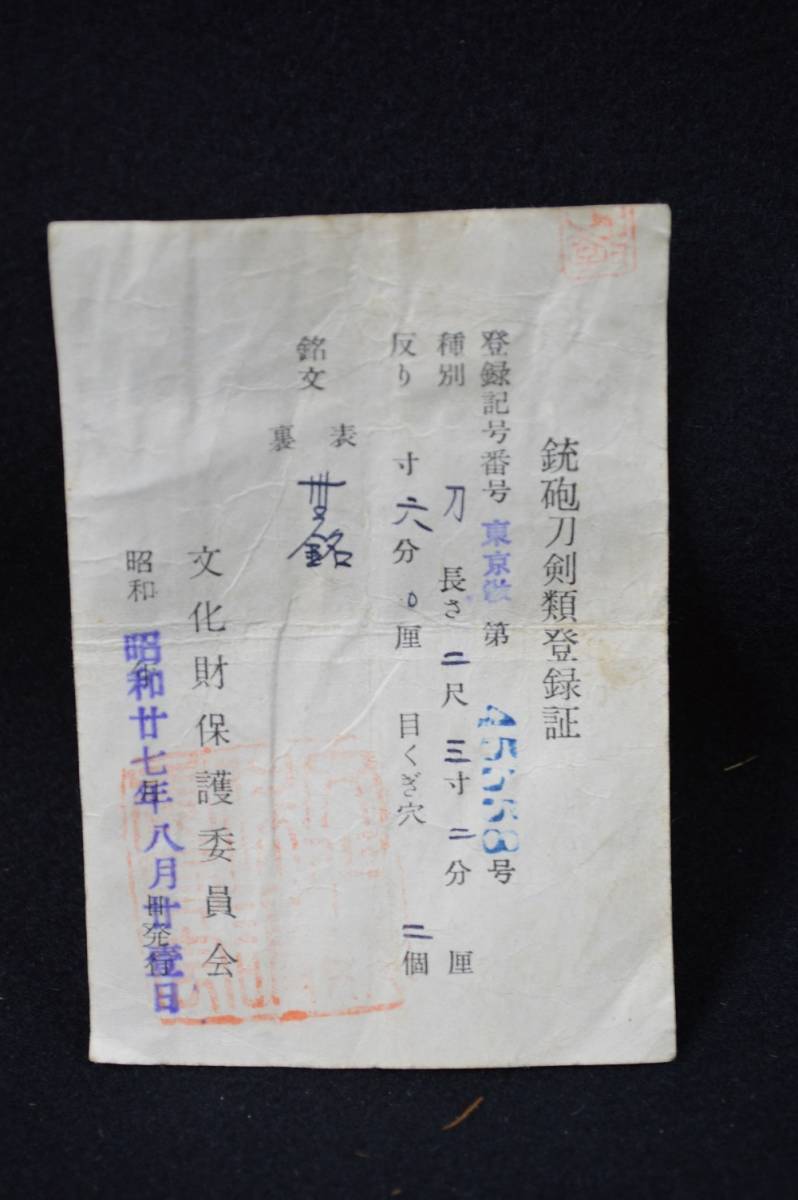 銃砲刀剣類登録証
登録記号番号 東京 第 45558号
種別 刀 長さ 二尺 三寸 二分 厘
反り 寸 六分 0厘 目くぎ穴 二個
銘文 表 無銘
裏
文化財保護委員会
昭和 年 月 日発行
昭和廿七年八月廿壹日